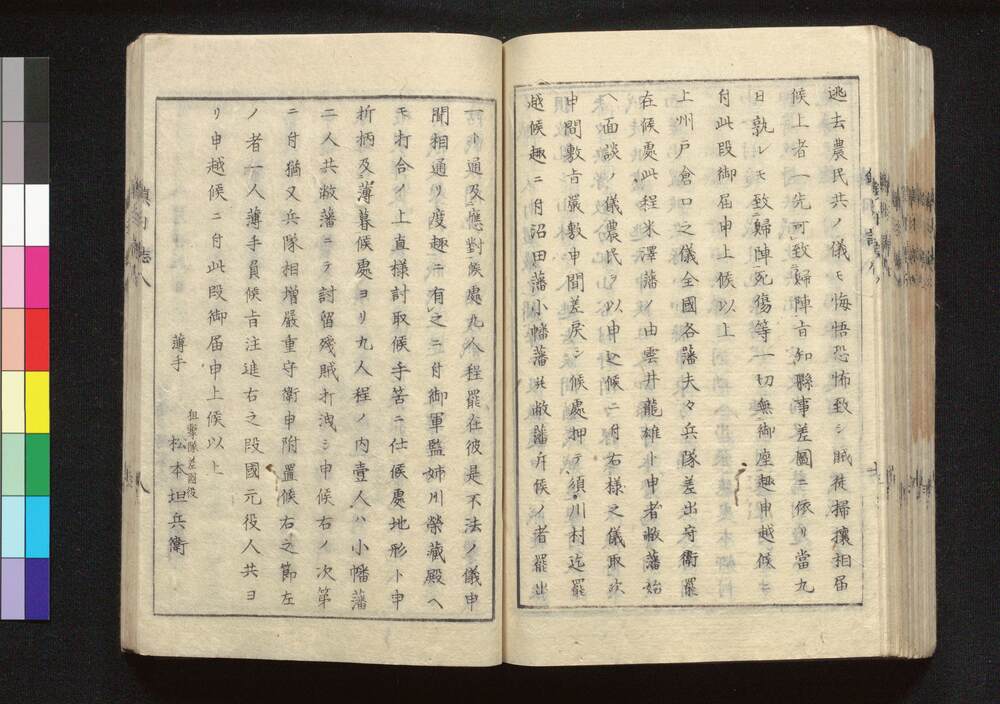 逃去農民共ノ儀モ悔悟恐怖致シ賊徒掃攘相届
候上者一先可致婦陣旨知縣事差圖ニ依リ當九
日孰レモ致婦陣死傷等一切無御座趣申越候
付此段御屆申上候以上
上州戸倉口之儀全國各藩夫々兵隊差出守衛罷
在候處此程米澤藩ノ由雲井龍雄ト申者敝藩始
ヘ面談ノ儀農民ヲ以申込候ニ付右様之儀取次
申間敷旨嚴敷申聞差戾シ候處押テ須川村迄罷
越候趣ニ付沼田藩小幡藩共敝藩斥候ノ者罷出
一ト通及應對候處九人程罷在彼是不法ノ儀申
聞相通リ度趣ニ有之ニ付御軍監姉川榮藏殿ヘ
打合ノ上直様討取候手筈ニ仕候處地形ト申
折柄及薄暮候處ヨリ九人程ノ内壹人ハ小幡藩
二人共敝藩ニテ討留殘賊打洩シ申候右ノ次第
ニ付猶又兵隊相增嚴重守衛申附置候右之節左
ノ者一人薄手負候旨注進右之段國元役人共ヨ
リ申越候ニ付此段御届申上候以上
狙擊隊差圖役
薄手 松本坦兵衛